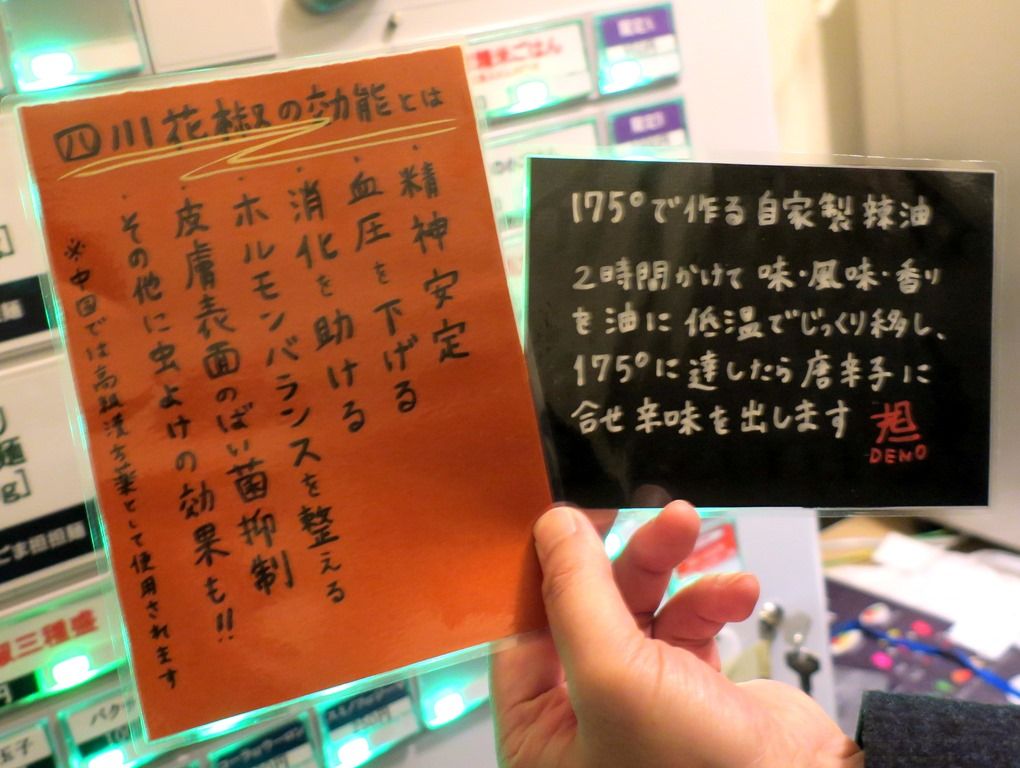 四川花椒の効能とは
・精神安定
・血圧を下げる
・消化を助ける
・ホルモンバランスを整える
・皮膚表面のばい菌抑制
・その他に虫よけの効果も!!
※中国では高級漢方薬として使用されます
175°で作る自家製辣油
2時間かけて味・風味・香り
を油に低温でじっくり移し、
175°に達したら唐辛子に
合せ辛味を出します
DEMO
三種盛
玉子